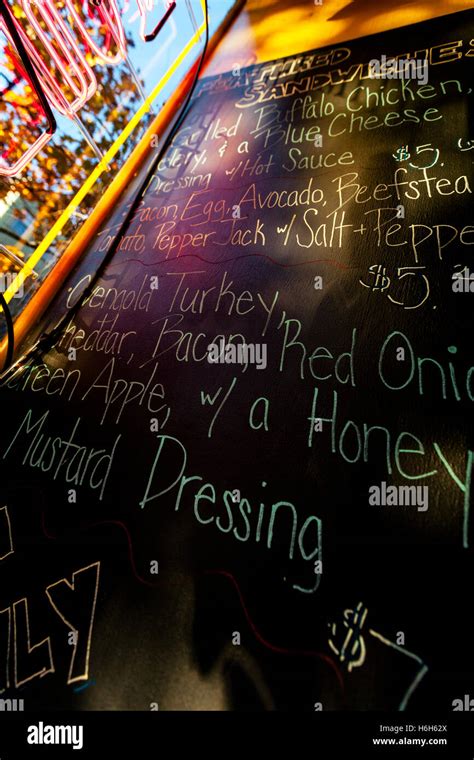 SANDWICHES
Grilled Buffalo Chicken,
Celery, & a Blue Cheese
Dressing w/Hot Sauce $5.
Bacon, Egg, Avocado, Beefstea
Tomato, Pepper Jack w/ Salt + Peppe
$5.
Ovengold Turkey,
Cheddar, Bacon, Red Onio
Green Apple, w/ a Honey
Mustard Dressing
$
LY
alamy
alamy
Image ID: H6H62X
www.alamy.com